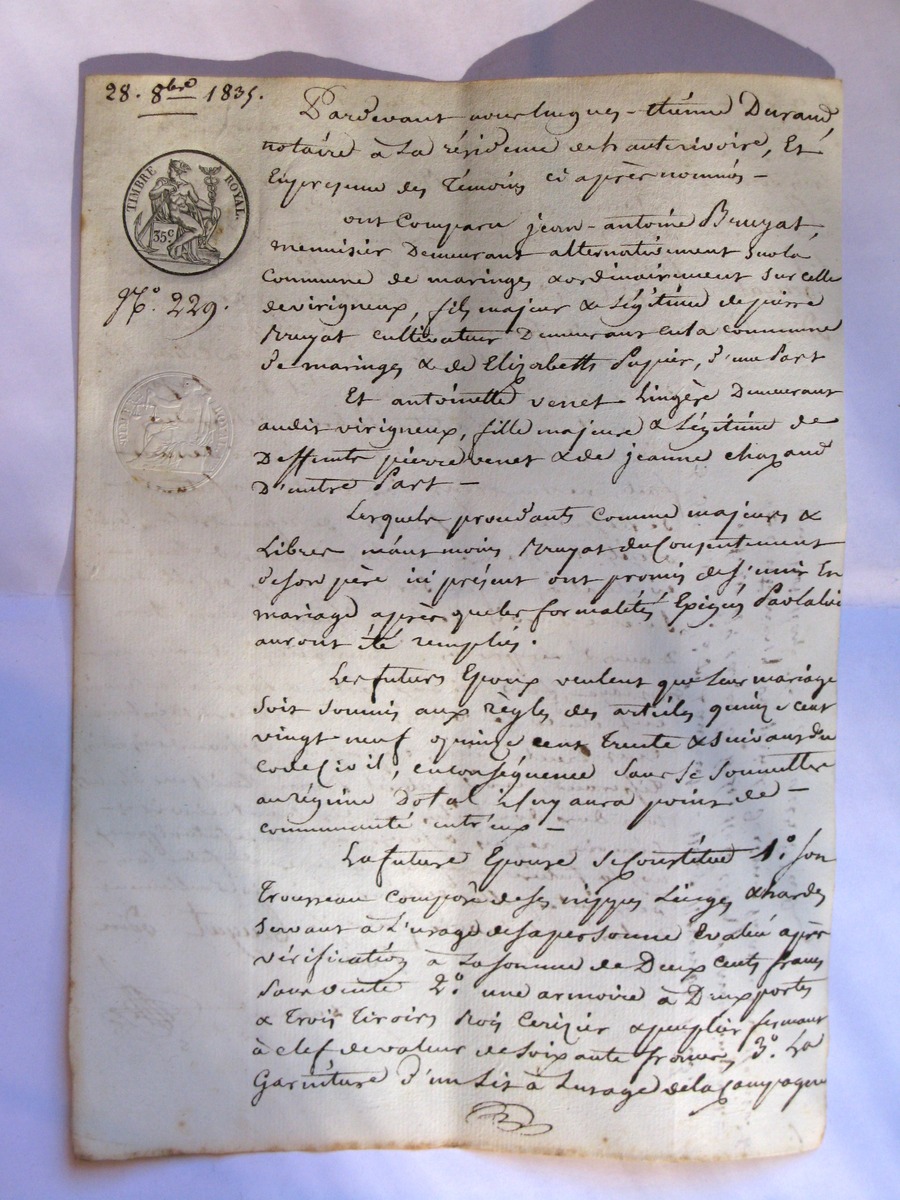 28. 8bre 1835.
Pardevant nous hugues-étienne Durand
notaire à La résidence de hauterivoire, Et
En presence des Témoins ci après nommés –
TIMBRE ROYAL.
35c
ont Comparu jean-antoine Bruyat,
menuisier Demeurant alternativement sur la
Commune de maringes & ordinairement sur celle
No. 229.
de virigneux, fils majeur & Légitime de pierre
Bruyat cultivateur Demeurant en la commune
de maringes & de Elizabeth Pupier, d'une Part
Et antoinette venet Lingère Demeurant
audit virigneux, fille majeure & Légitime de
Deffunts pierre venet & de jeanne chazaud
D'autre Part –
Lesquels procédants comme majeurs &
Libres néantmoins Bruyat du Consentement
de son père ici présent ont promis de s'unir En
mariage après que les formalités Exigées Par la loi
auront été remplies.
Les futurs Epoux veulent que Leur mariage
soit soumis aux règles des articles quinze cent
vingt neuf & quinze cent Trente & suivants du
code Civil, en conséquence sans se soumettre
au régime Dotal il n'y aura point de –
communauté entr'eux –
La future Epouse se Constitue 1o. son
Trousseau Composé de ses nippes Linges & hardes
servant à L'usage de sa personne Evalué après
vérification à La somme de Deux cents francs
sans vente 2o. une armoire à Deux portes
& Trois Tiroirs Bois Cerizier & peuplier fermant
à clef de valeur de soixante francs, 3o. La
Garniture d'un Lit à L'usage de la Campagne